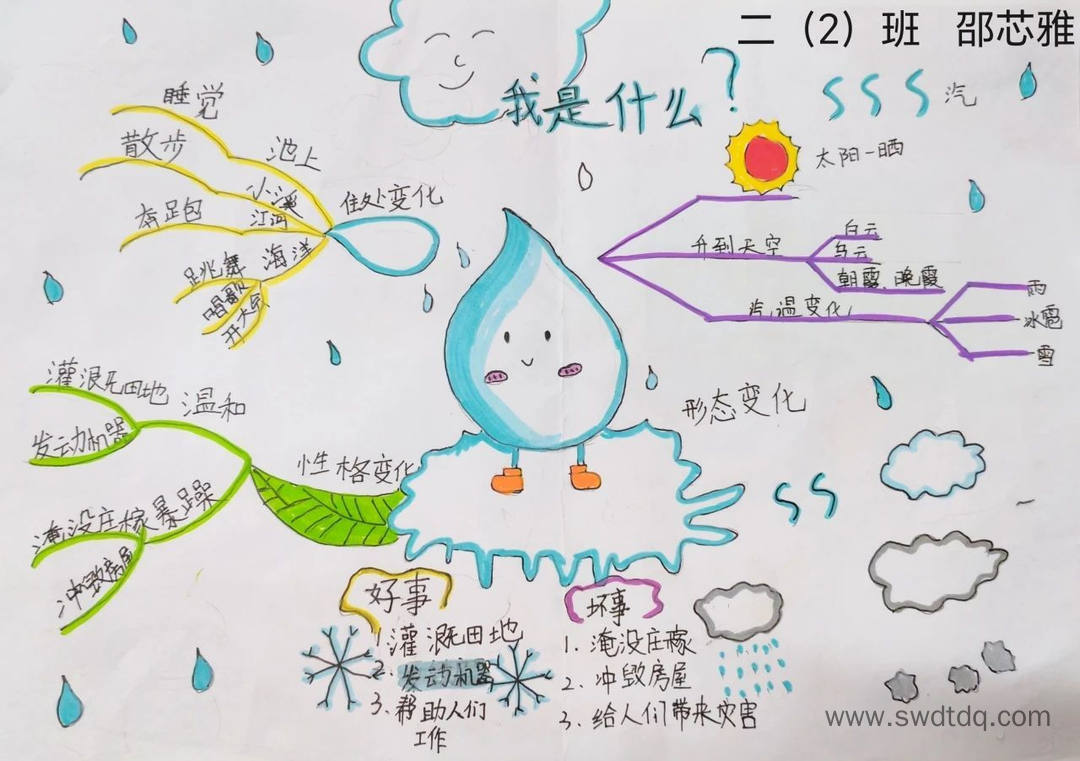 二（2）班 邵芯雅
我是什么？
汽
太阳一晒
升到天空
白云
乌云
朝霞、晚霞
汽温变化
雨
冰雹
雪
形态变化
住处变化
池上
睡觉
散步
小溪
江河
奔跑
海洋
跳舞
唱歌
性格变化
温和
灌溉田地
发动机器
暴躁
淹没庄稼
冲毁房屋
好事
1.灌溉田地
2.发动机器
3、帮助人们
工作
坏事
1.淹没庄稼
2.冲毁房屋
3、给人们带来灾害
www.swdtdq.com